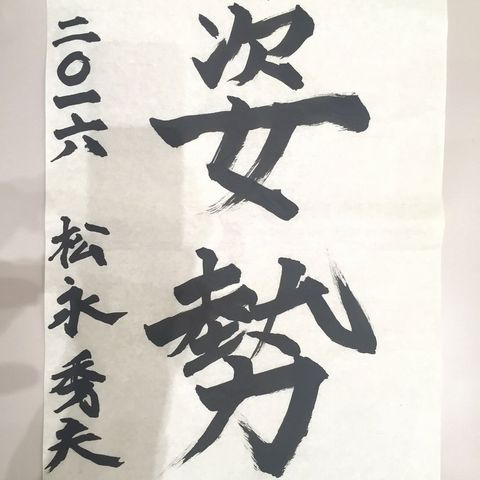 姿勢
二〇一六 松永秀夫